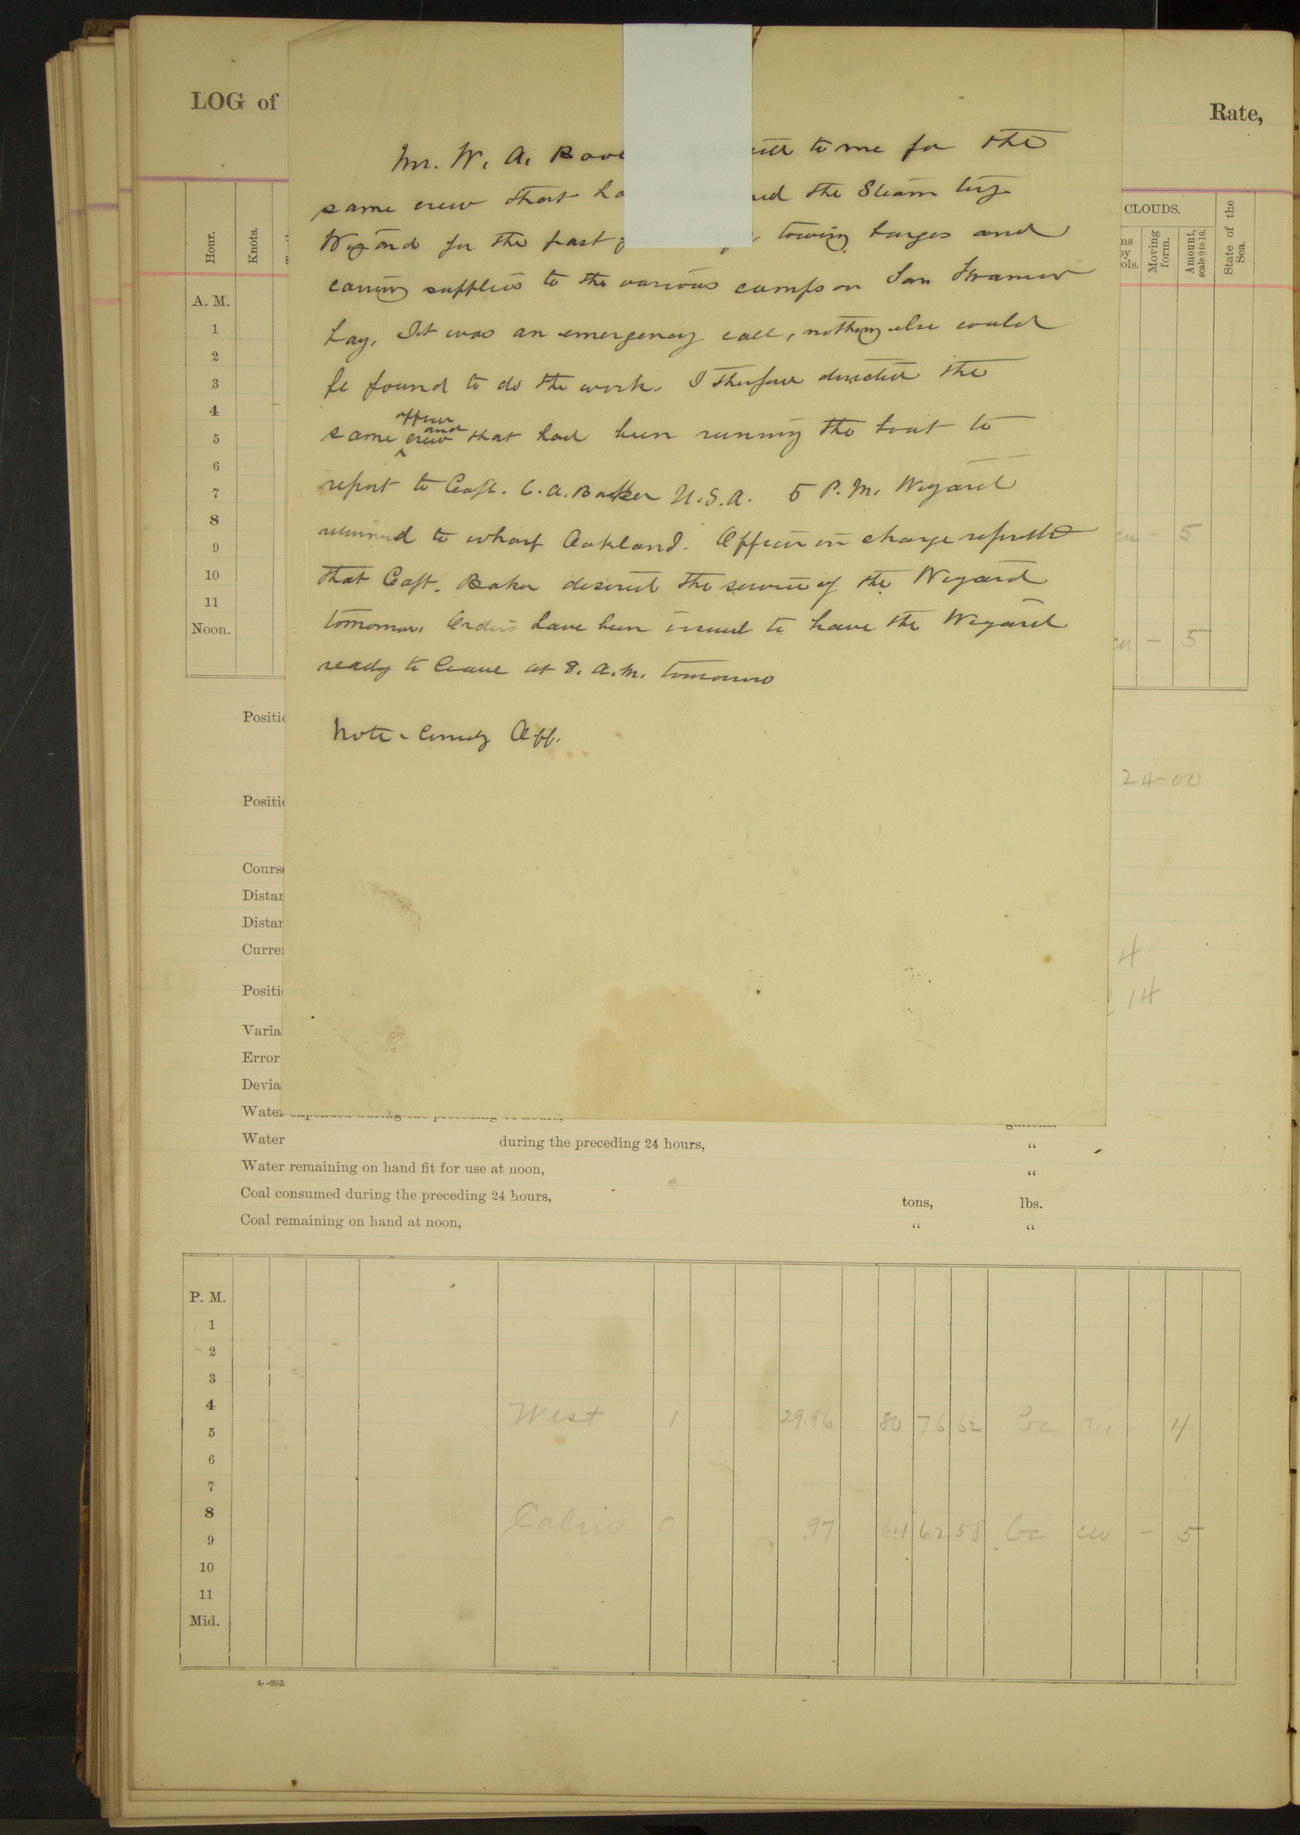 LOG of
Rate,
Mr. W. A. to me for the
same crew that the Steam tug
Wizard for the past towing barges and
carring supplies to the various camps on San Francisco
bay. It was an emergency call, nothing else could
be found to do the work. I therefore directed the
officer and
same crew that had been running the boat to
report to Capt. C. A. Baker U.S.A. 5 P.M. Wizard
returned to wharf Oakland. Officer in charge reported
that Capt. Baker desired the service of the Wizard
tomorrow. Orders have been issued to have the Wizard
ready to leave at 8. A.M. tomorrow
Note - Comdg Off.
Hour.
Knots.
CLOUDS.
Moving form.
Amount, scale 0 to 10.
State of the Sea.
A. M.
1
2
3
4
5
6
7
8 - 5
9
10
11
Noon. - 5
24-00
4
14
Water
Water during the preceding 24 hours, “
Water remaining on hand fit for use at noon, “
Coal consumed during the preceding 24 hours, tons, lbs.
Coal remaining on hand at noon, “ “
P. M.
1
2
3
4 West 1 29.96 80 76 62 bc cu - 4
5
6
7
8 Calm 0 .97 64 62 58 bc cu - 5
9
10
11
Mid.